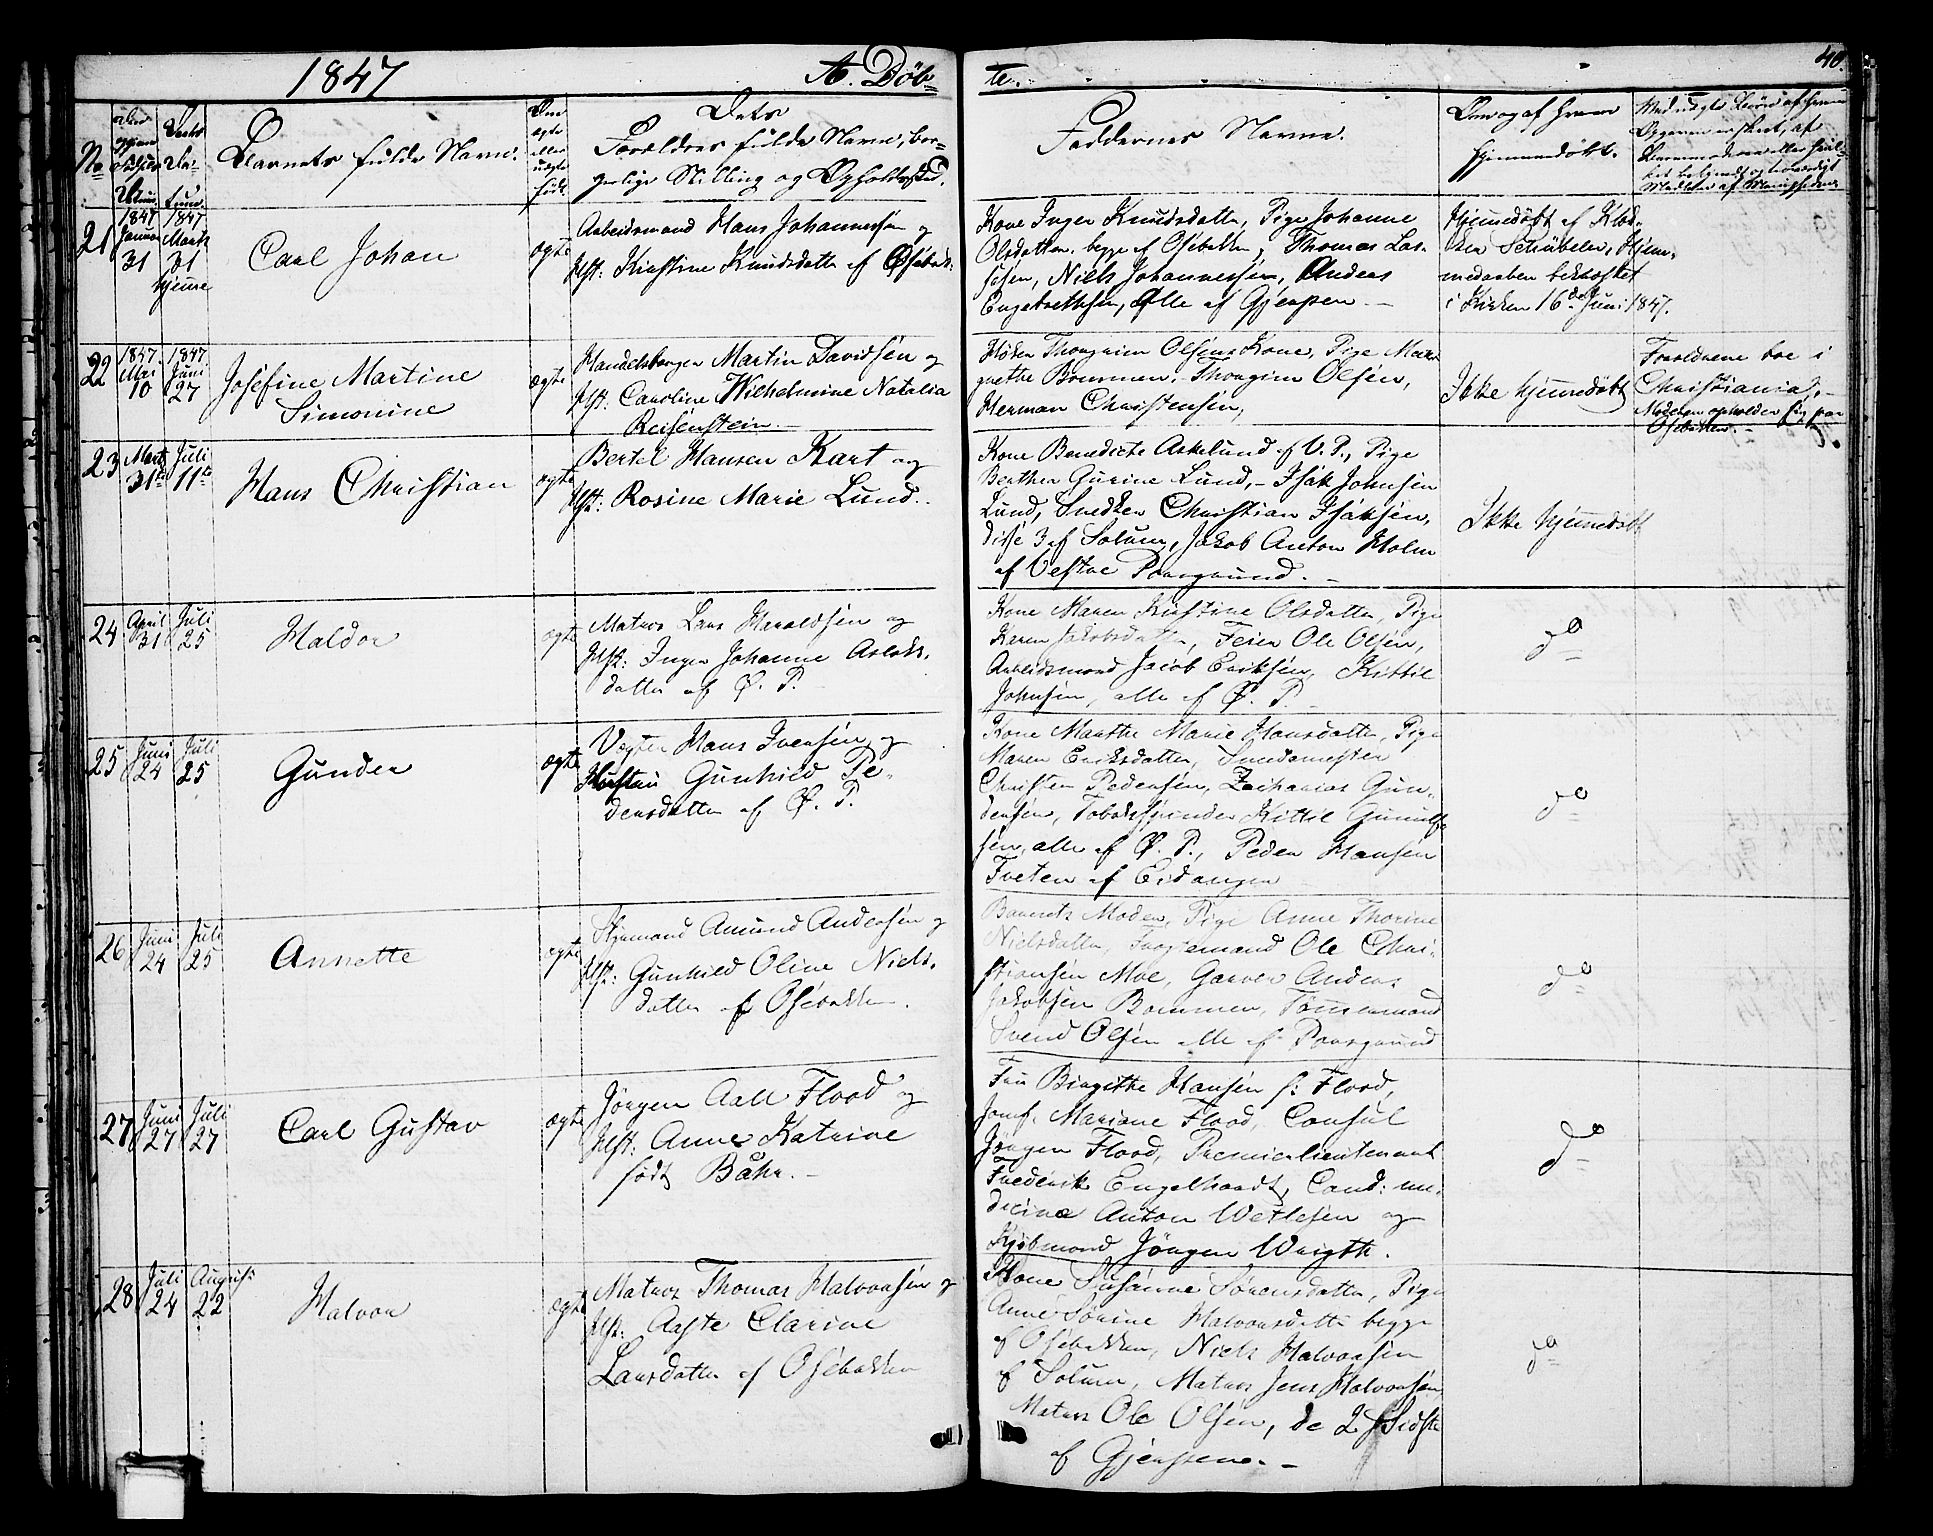 1847
A. Døb=
te.
40.
No
Barnets fulde Navn.
Dets
Forældres fulde Navne, bor=
gerlige Stilling og Opholdssted.
Faddernes Navne.
Om og af hvem
hjemmedøbt.
21
1847
Januar
31
1847
Marts
31
hjeme
Carl Johan
ægte
Arbeidsmand Hans Johannesen og
Hst: Kirstine Knudsdatter af Øsebak:
Kone Inger Knudsdatter, Pige Johanne
Olsdatter begge af Osebakken, Thomas Lar=
sen, Niels Johannessen, Anders
Engebrethsen, Alle af Gjerpen. —
Hjemmedøbt af Klok=
ker Schübeler, Hjem=
medaaben bekræftet
i Kirken 16de Juni 1847.
22
1847
Mai
10
1847
Juni
27
Josefine Martine
Simonine
ægte
Handelsborger Martin Davidsen og
Hst: Caroline Wilhelmine Natalia
Reisenstein. —
Høker Thorgrim Olsens Kone, Pige Mar=
grethe Brommen, Thorgrim Olsen,
Herman Christensen,
Ikke hjemmedøbt
Forældrene boe i
Christiania, —
Moderen opholder sig paa
Osebakken. —
23
Marts
31te
Juli
11te
Hans Christian
ægte
Bertel Hansen Kart og
Hst: Rosine Marie Lund.
Kone Benedicte Askelund af V. P., Pige
Berthe Gurine Lund, — Isak Johnsen
Lund, Snedker Christian Isaksen,
disse 3 af Solum, Jakob Anton Holm
af Vestre Porsgrund. —
Ikke hjemmedøbt
24
April
31
Juli
25
Haldor
ægte
Matros Lars Haraldsen og
Hst: Inger Johanne Aslaks=
datter af Ø. P.
Kone Maren Kirstine Olsdatter, Pige
Karen Jakobsdatter, Feier Ole Olsen,
Arbeidsmand Jacob Eriksen, Kittil
Johnsen, alle af Ø. P.
do
25
Juni
24
Juli
25
Gunder
ægte
Vægter Hans Ivensen og
Hustru Gunhild Pe=
dersdatter af Ø. P.
Kone Marthe Marie Hansdatter, Pige
Maren Eriksdatter, Smedemester
Christen Pedersen, Zacharias Gun=
dersen, Tobakspinder Kittil Gunulf=
sen, alle af Ø. P., Peder Hansen
Tveten af Eidanger
do
26
Juni
24
Juli
25
Annette
ægte
Styrmand Amund Andersen og
Hst: Gunhild Oline Niels=
datter af Osebakken.
Barnets Moder, Pige Anne Thorine
Nielsdatter, Ole Chri=
stiansen Moe, Garver Anders
Jakobsen Bommen, Tømmermand
Svend Olsen alle af Porsgrund
do
27
Juni
27
Juli
27
Carl Gustav
ægte
Jörgen Aall Flood og
Hst: Anne Katrine
født Båhr. —
Fru Birgithe Hansen f: Flood,
Jomf. Mariane Flood, Consul
Jörgen Flood, Premierlieutenant
Frederik Engelhardt, Cand: me=
dicina Anton Wetlesen og
Kjøbmand Jörgen Wrigth.
do
28
Juli
24
August
22
Halvor
ægte
Matros Thomas Halvorsen og
Hst: Aaste Clarine
Larsdatter af Osebakken
Kone Susanne Sörensdatter, Pige
Anne Sörine Halvorsdatter begge
af Osebakken, Niels Halvorsen
af Solum, Matros Jens Halvorsen
Matros Ole Olsen, de 2 Sidste
af Gjerpen. —
do